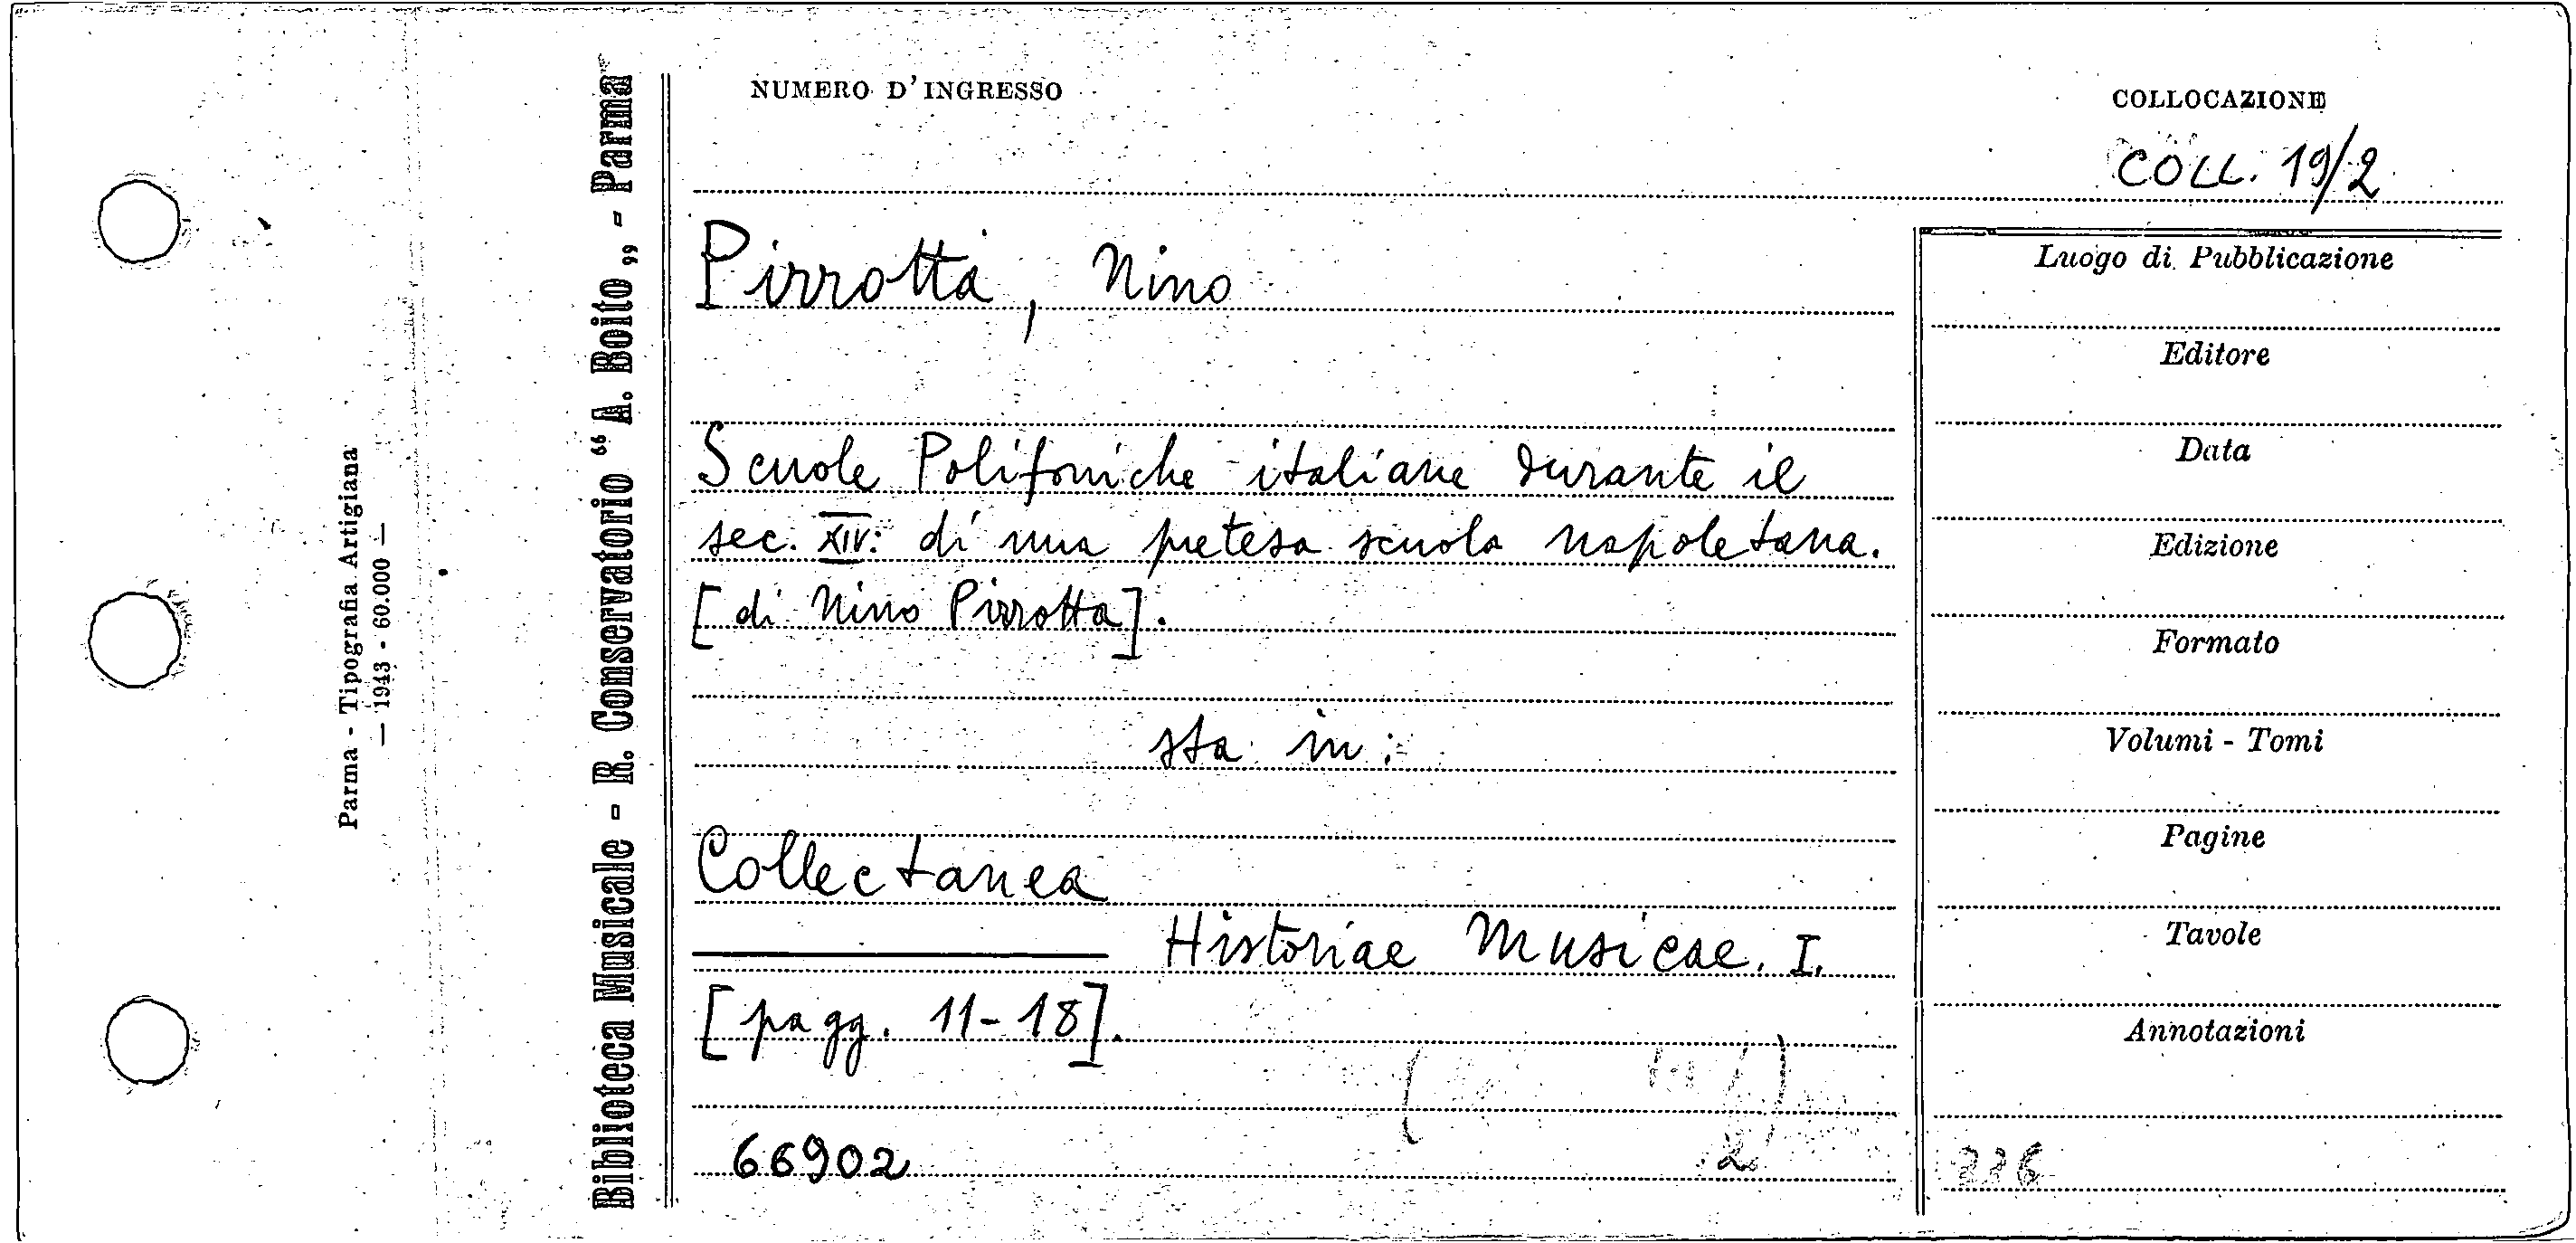 NUMERO D'INGRESSO
COLLOCAZIONE
COLL. 19/2
Pirrotta, Nino
Scuole Polifoniche italiane durante il
sec. XIV: di una pretesa scuola napoletana.
[di Nino Pirrotta].
sta in:
Collectanea
Historiae Musicae. I.
[pagg. 11-18].
66902
2
Luogo di Pubblicazione
Editore
Data
Edizione
Formato
Volumi - Tomi
Pagine
Tavole
Annotazioni
Biblioteca Musicale - R. Conservatorio “A. Boito„ - Parma
Parma - Tipografia Artigiana
— 1943 - 60.000 —